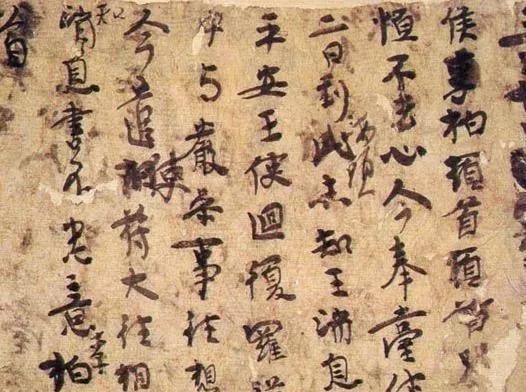 侯李柏頓首頓首
恒不去心今奉臺使
二日到此海頭未知王消息
平安王使迴復羅從
中与嚴參事往想
今遣使苻大往相
知消息書不悉意李柏
首